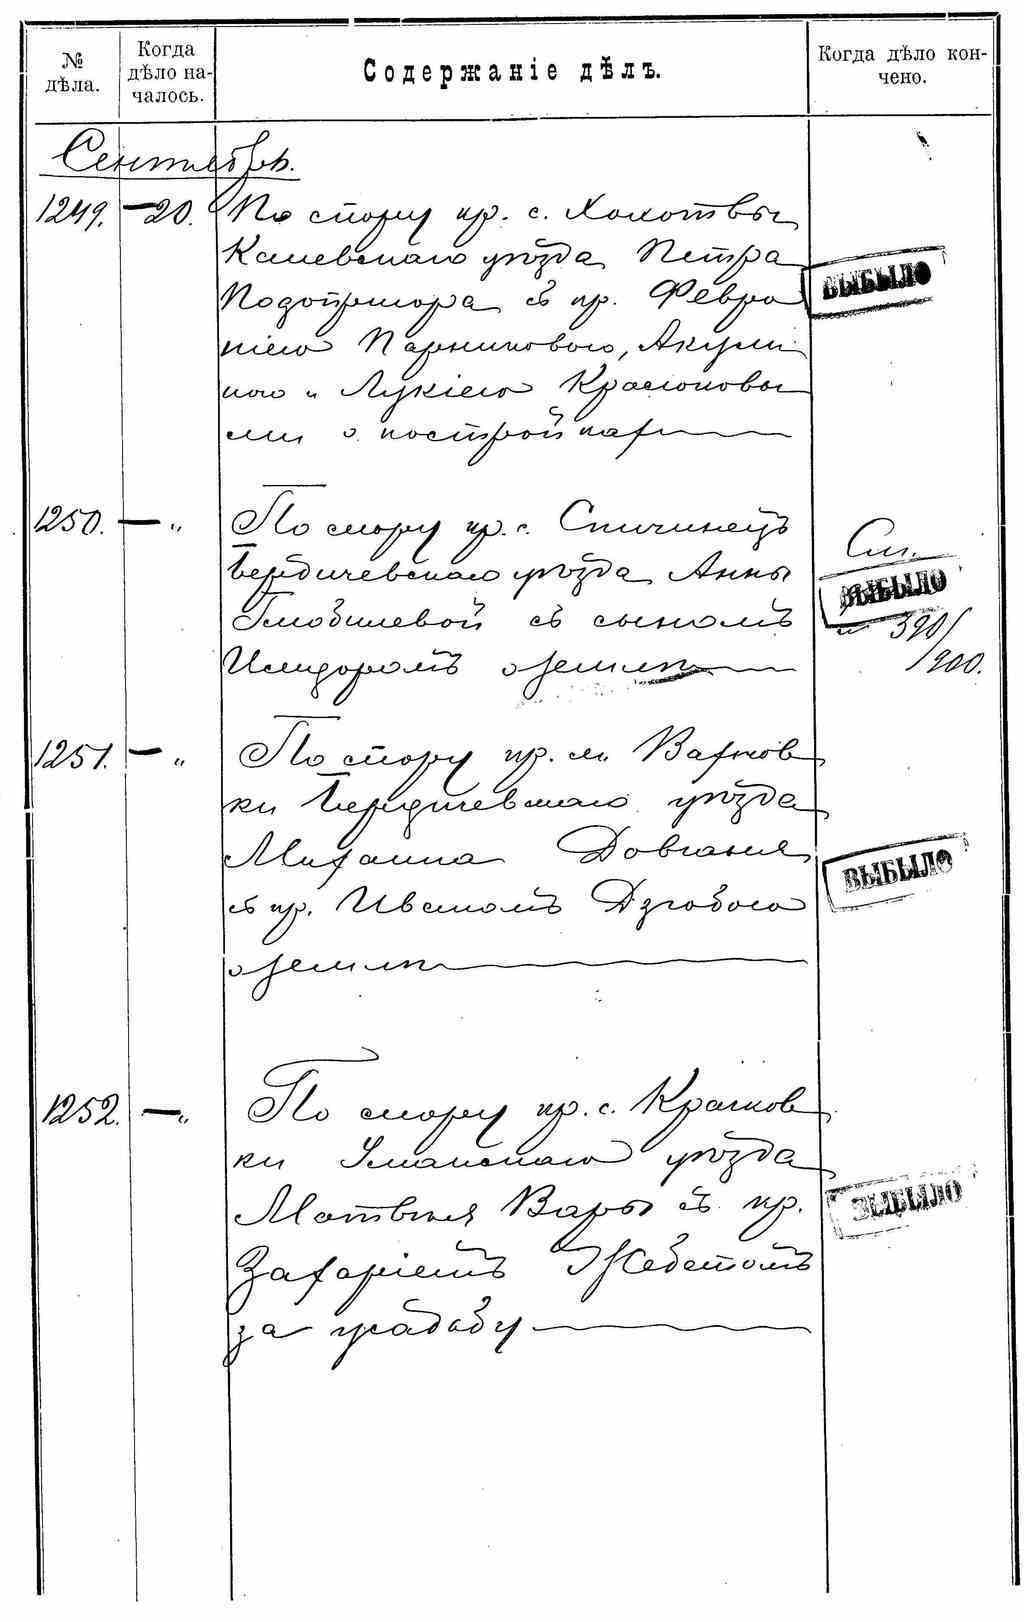 № дѣла.
Когда дѣло на-
чалось.
Содержаніе дѣлъ.
Когда дѣло кон-
чено.
Сентябрь.
1249. — 20. По спору кр. с. Хохотвы
Каневскаго уѣзда Петра
Подопригора съ кр. Февро
ніею Парниковою, Акули
ною и Лукіею
ми о постройках
ВЫБЫЛО
1250. — „ По спору кр. с. Спичинецъ
Бердичевскаго уѣзда Анны
съ сыномъ
Исидоромъ о землѣ
См.
ВЫБЫЛО
№ 390/
900.
1251. — „ По спору кр. м. Вахнов
ки Бердичевскаго уѣзда
Михаила Довганя
съ кр. Иваномъ Дзюбою
о землѣ
ВЫБЫЛО
1252. — „ По спору кр. с. Крачков
ки Уманскаго уѣзда
Матвѣя Вары съ кр.
Захаріемъ
за усадьбу
ВЫБЫЛО